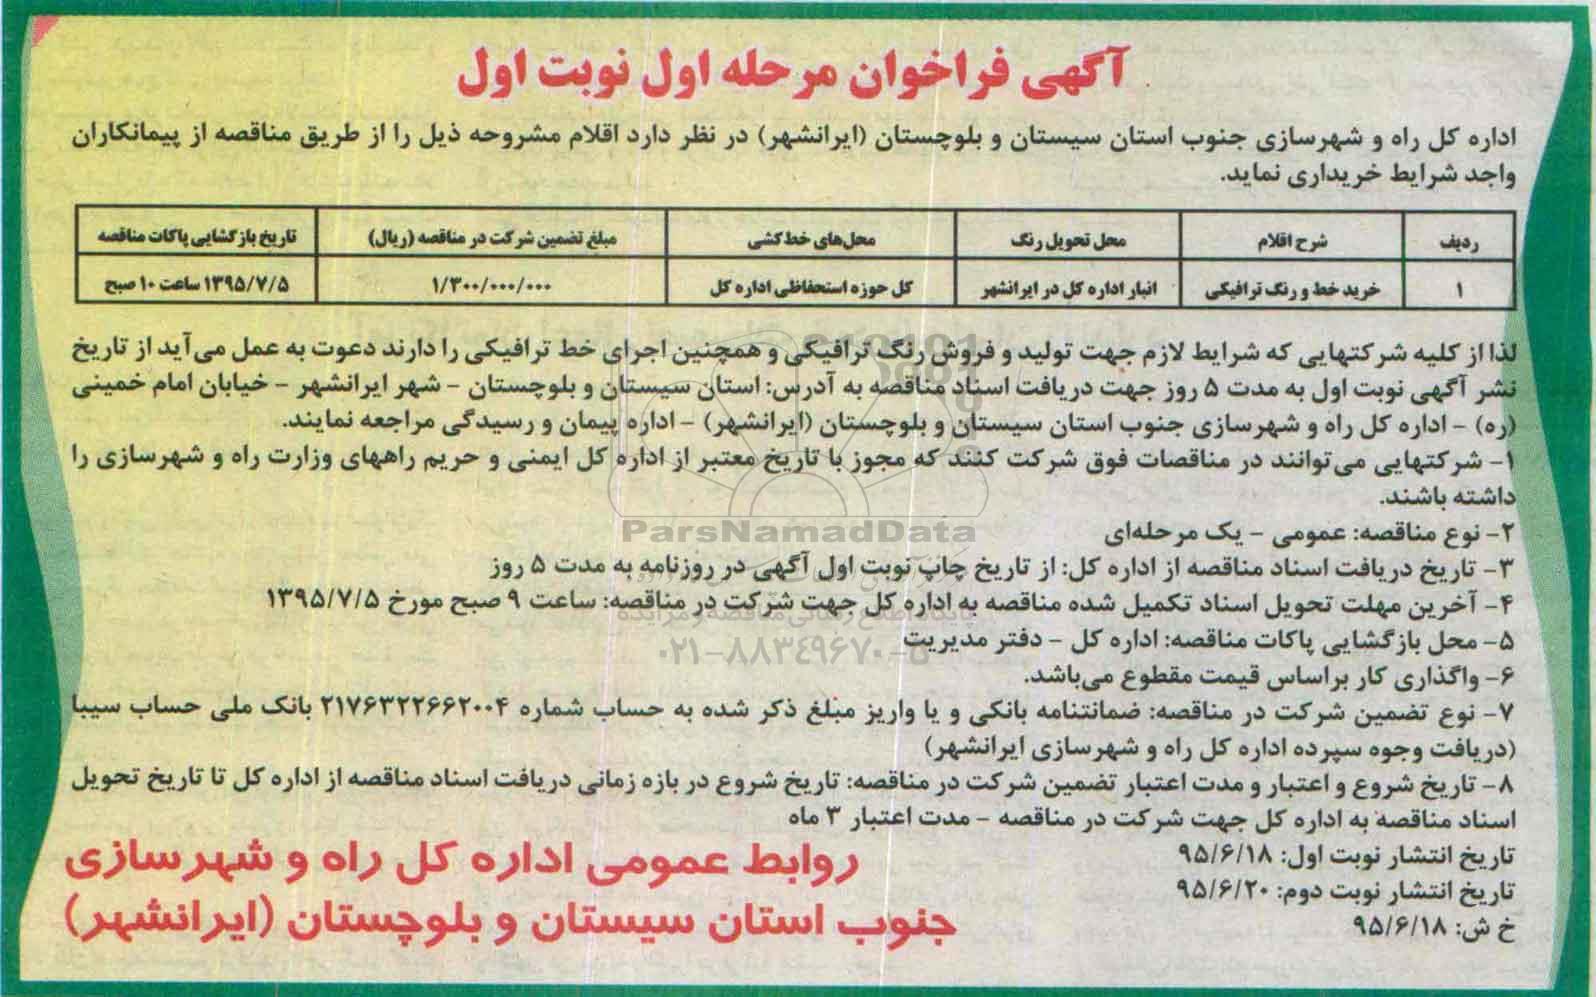 آگهی فراخوان مرحله اول نوبت اول
اداره کل راه و شهرسازی جنوب استان سیستان و بلوچستان (ایرانشهر) در نظر دارد اقلام مشروحه ذیل را از طریق مناقصه از پیمانکاران
واجد شرایط خریداری نماید.
ردیف شرح اقلام محل تحویل رنگ محل‌های خط‌کشی مبلغ تضمین شرکت در مناقصه (ریال) تاریخ بازگشایی پاکات مناقصه
۱ خرید خط و رنگ ترافیکی انبار اداره کل در ایرانشهر کل حوزه استحفاظی اداره کل ۱/۳۰۰/۰۰۰/۰۰۰ ۱۳۹۵/۷/۵ ساعت ۱۰ صبح
لذا از کلیه شرکتهایی که شرایط لازم جهت تولید و فروش رنگ ترافیکی و همچنین اجرای خط ترافیکی را دارند دعوت به عمل می‌آید از تاریخ
نشر آگهی نوبت اول به مدت ۵ روز جهت دریافت اسناد مناقصه به آدرس: استان سیستان و بلوچستان - شهر ایرانشهر - خیابان امام خمینی
(ره) - اداره کل راه و شهرسازی جنوب استان سیستان و بلوچستان (ایرانشهر) - اداره پیمان و رسیدگی مراجعه نمایند.
۱- شرکتهایی می‌توانند در مناقصات فوق شرکت کنند که مجوز با تاریخ معتبر از اداره کل ایمنی و حریم راههای وزارت راه و شهرسازی را
داشته باشند.
۲- نوع مناقصه: عمومی - یک مرحله‌ای
ParsNamadData
۳- تاریخ دریافت اسناد مناقصه از اداره کل: از تاریخ چاپ نوبت اول آگهی در روزنامه به مدت ۵ روز
۴- آخرین مهلت تحویل اسناد تکمیل شده مناقصه به اداره کل جهت شرکت در مناقصه: ساعت ۹ صبح مورخ ۱۳۹۵/۷/۵
پایگاه اطلاع رسانی مناقصه و مزایده
۵- محل بازگشایی پاکات مناقصه: اداره کل - دفتر مدیریت
۰۲۱-۸۸۳۴۹۶۷۰-۵
۶- واگذاری کار براساس قیمت مقطوع می‌باشد.
۷- نوع تضمین شرکت در مناقصه: ضمانتنامه بانکی و یا واریز مبلغ ذکر شده به حساب شماره ۲۱۷۶۳۲۲۶۶۲۰۰۴ بانک ملی حساب سیبا
(دریافت وجوه سپرده اداره کل راه و شهرسازی ایرانشهر)
۸- تاریخ شروع و اعتبار و مدت اعتبار تضمین شرکت در مناقصه: تاریخ شروع در بازه زمانی دریافت اسناد مناقصه از اداره کل تا تاریخ تحویل
اسناد مناقصه به اداره کل جهت شرکت در مناقصه - مدت اعتبار ۳ ماه
تاریخ انتشار نوبت اول: ۹۵/۶/۱۸
تاریخ انتشار نوبت دوم: ۹۵/۶/۲۰
خ ش: ۹۵/۶/۱۸
روابط عمومی اداره کل راه و شهرسازی
جنوب استان سیستان و بلوچستان (ایرانشهر)